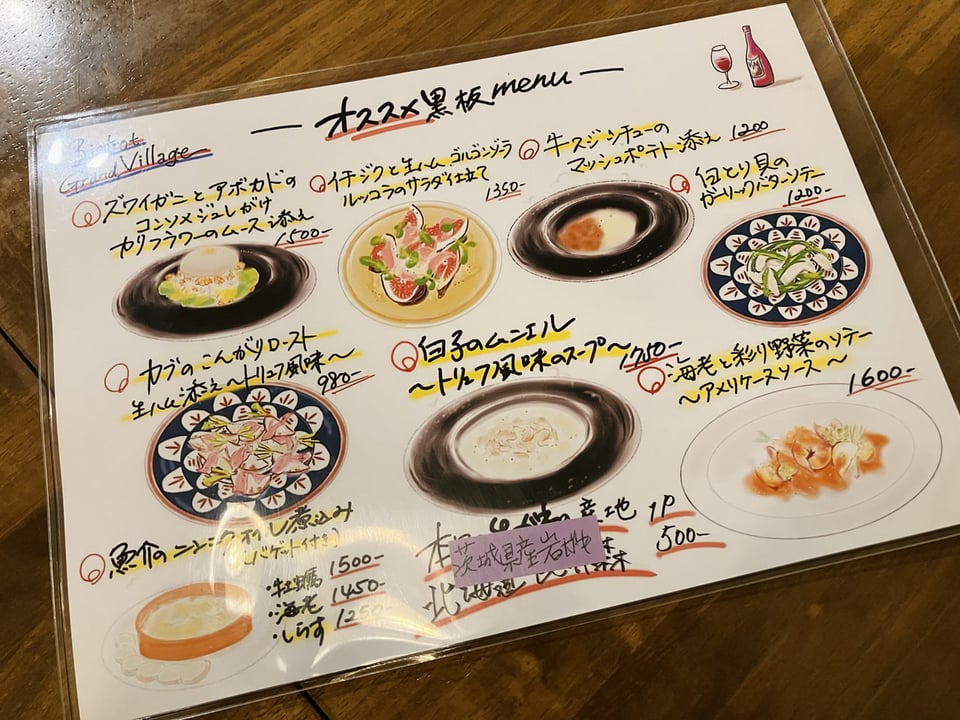 — オススメ黒板menu —
Bistrot
Grand Village
ズワイガニとアボカドの
コンソメジュレがけ
カリフラワーのムース添え
1500-
イチジクと生ハム、ゴルゴンゾーラ
ルッコラのサラダ仕立て
1350-
牛スジシチューの
マッシュポテト添え 1200
白とり貝の
ガーリックバターソテー
1200-
カブのこんがりロースト
生ハム添え〜トリュフ風味〜
980-
白子のムニエル
〜トリュフ風味のスープ〜
1750-
海老と彩り野菜のソテー
〜アメリケーヌソース〜
1600-
魚介のニンニクオイル煮込み
(バゲット付き)
・牡蠣 1500-
・海老 1450-
・しらす 1250-
本日 の産地 1P
茨城県産岩ガキ
北海道 500-